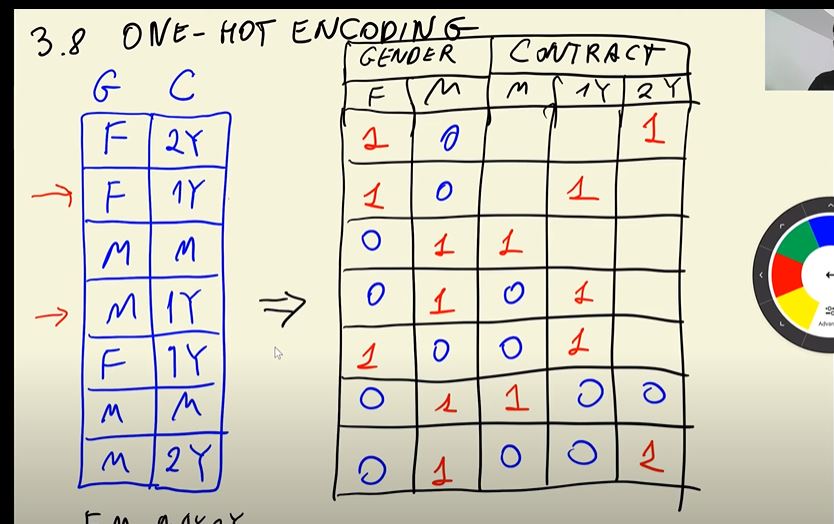 3.8 ONE-HOT ENCODING
G C
F 2Y
F 1Y
M M
M 1Y
F 1Y
M M
M 2Y
⇒
GENDER CONTRACT
F M M 1Y 2Y
1 0 1
1 0 1
0 1 1
0 1 0 1
1 0 0 1
0 1 1 0 0
0 1 0 0 1